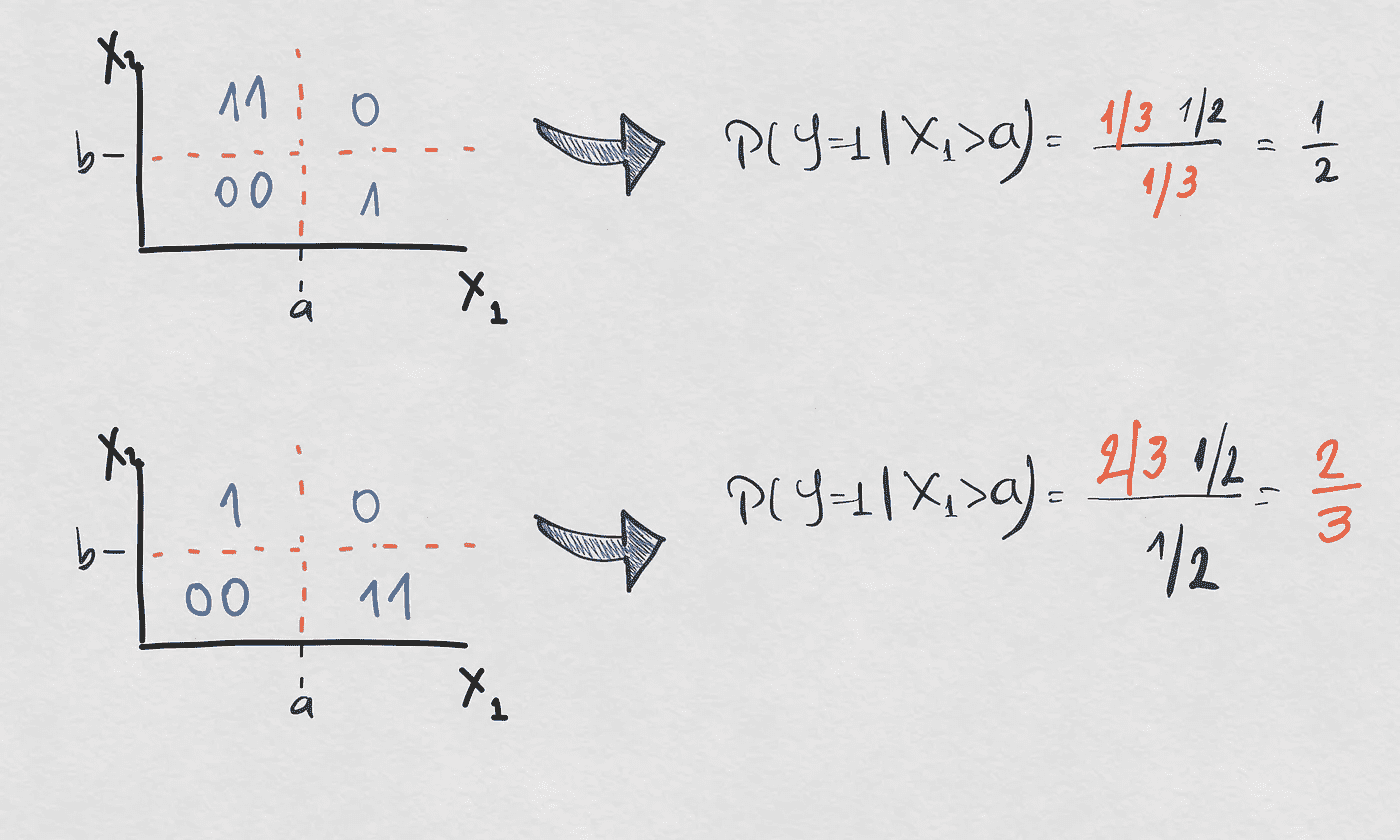 X₂
11 0
b
00 1
a
X₁
P(y=1|X₁>a) = (1/3 1/2)/(1/3) = 1/2
X₂
1 0
b
00 11
a
X₁
P(y=1|X₁>a) = (2/3 1/2)/(1/2) = 2/3